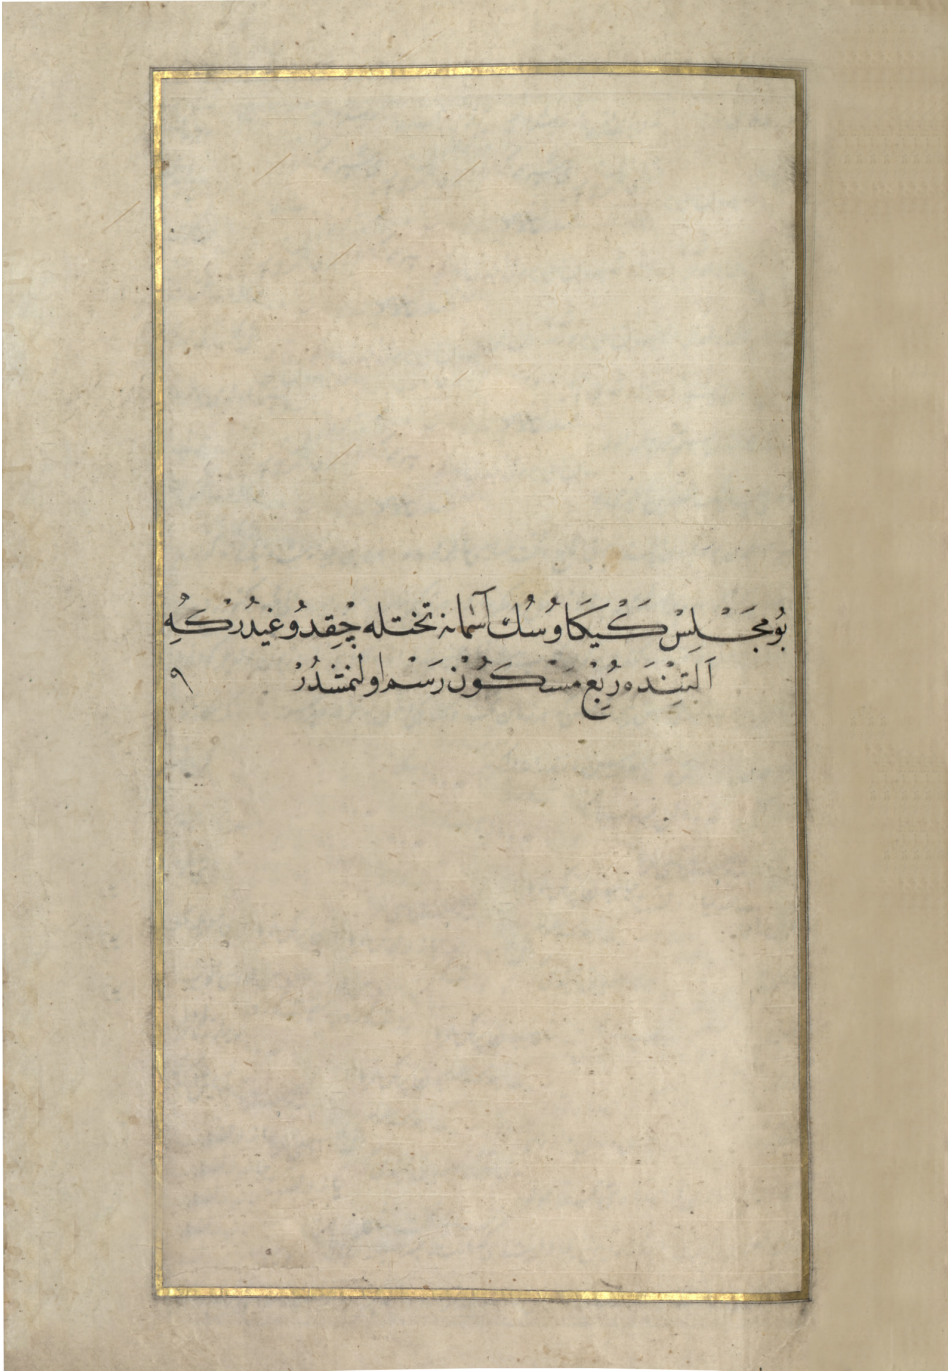 بُو مَجْلِسْ كَيْكَاوُسُكْ آسْمَانه تختله چِقِدُوغيدُرْكُه
اَلتِنْدَه رُبِعْ مَسْكُونْ رَسْم اولنمشدُرْ ٩